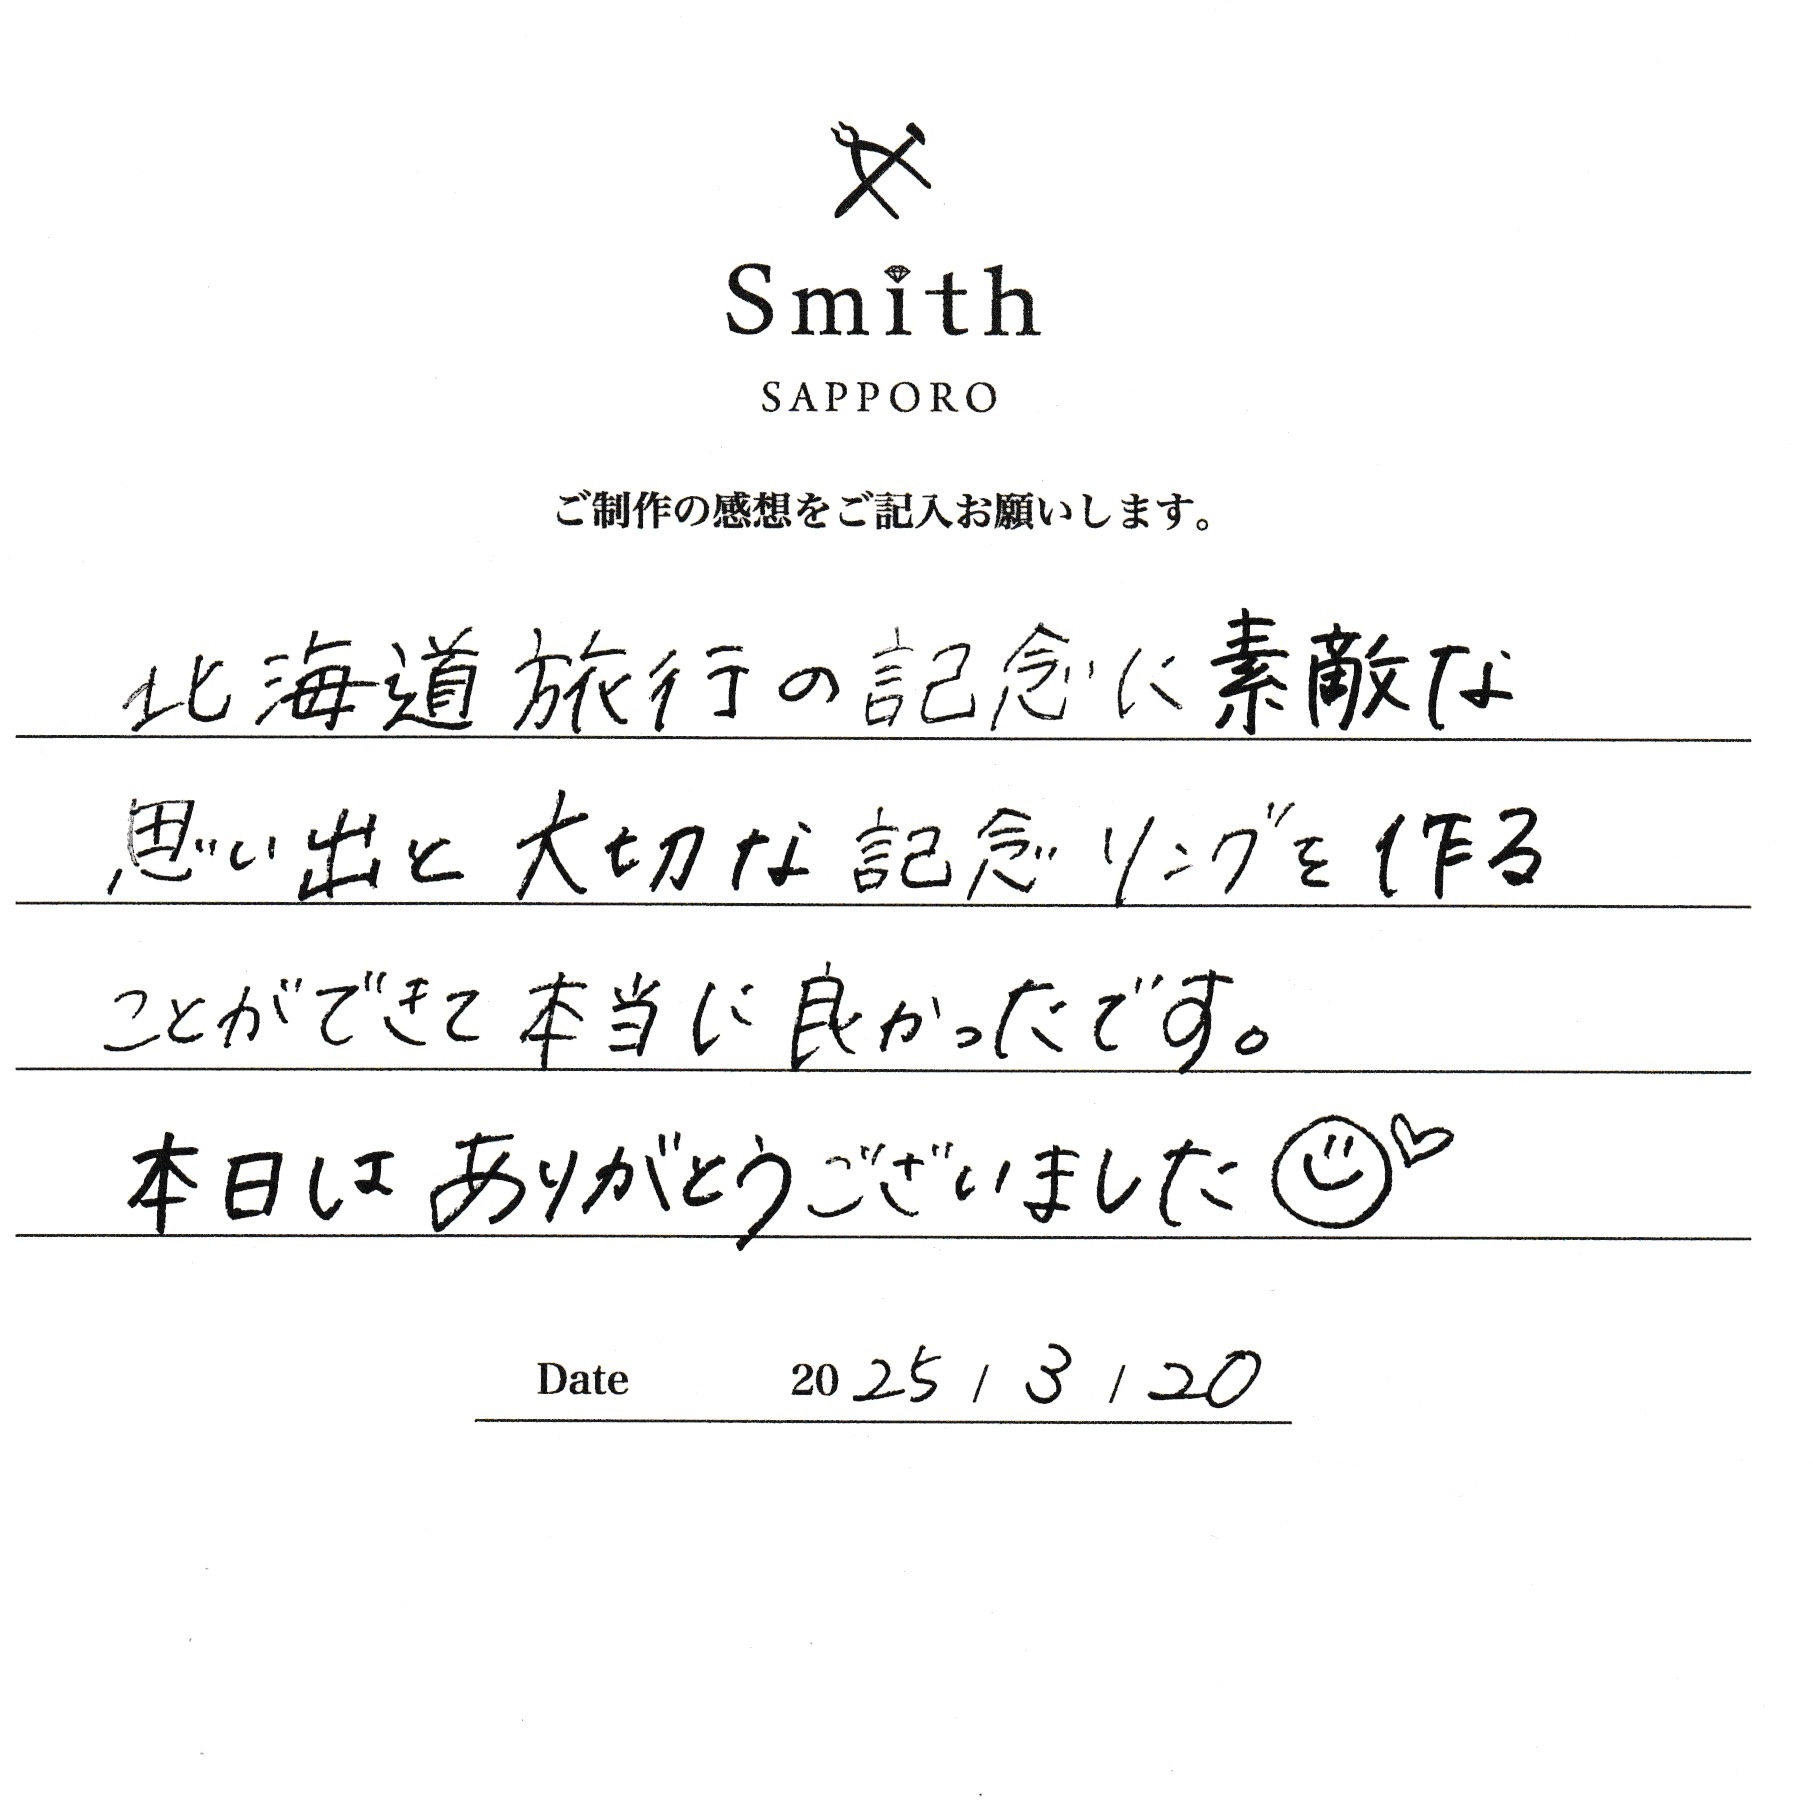 Smith
SAPPORO
ご制作の感想をご記入お願いします。
北海道旅行の記念に素敵な
思い出と大切な記念リングを作る
ことができて本当に良かったです。
本日はありがとうございました
Date 2025/3/20